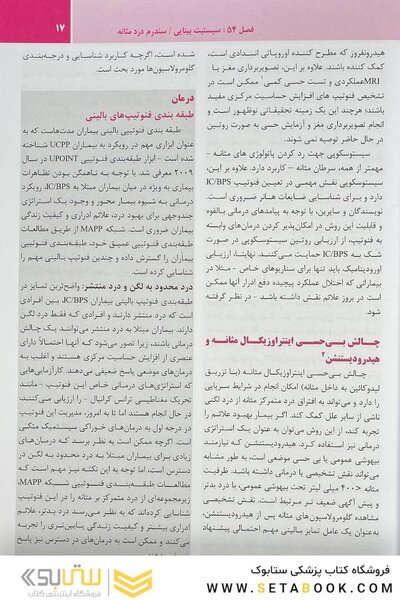 فصل ۵۴ : سیستیت بینابینی / سندرم درد مثانه
۱۷
هیدرونفروز که مطرح کننده اوروپاتی انسدادی است،
کمک کننده باشند. علاوه بر این، تصویربرداری مغز با
MRI عملکردی و تست حسی کمی۱ ممکن است در
تشخیص فنوتیپ های افزایش حساسیت مرکزی مفید
باشند؛ هرچند این یک زمینه تحقیقاتی نوظهور است و
انجام تصویربرداری مغز و آزمایش حسی به صورت روتین
در حال حاضر توصیه نمی شوند.
سیستوسکوپی جهت رد کردن پاتولوژی های مثانه -
مهمتر از همه، سرطان مثانه - کاربرد دارد. علاوه بر این،
سیستوسکوپی نقش مهمی در تعیین فنوتیپ IC/BPS
دارد و برای شناسایی ضایعات هانر ضروری است.
نویسندگان و سایرین، با توجه به پیامدهای درمانی بالقوه
و قابلیت این روش در امکان‌پذیر کردن درمان‌های وابسته
به فنوتیپ، از ارزیابی روتین سیستوسکوپی در صورت
شک به IC/BPS حمایت می کنند. نهایتا، ارزیابی
اورودینامیک باید تنها برای سناریوهای خاص - مثلا در
بیمارانی که احتمال عملکرد پیچیده دفع ادرار آنها ممکن
است در بروز علائم نقش داشته باشد - در نظر گرفته
شود.
چالش بی‌حسی اینتراوزیکال مثانه و
هیدرودیستنشن۲
چالش بی‌حسی اینتراوزیکال مثانه (با تزریق
لیدوکائین به داخل مثانه) امکان انجام در شرایط سرپایی
را دارد و می‌تواند به افتراق درد متمرکز مثانه از درد لگنی
ناشی از سایر علل کمک کند. اگر بیمار بهبود علائم را
تجربه کند، از این روش می‌توان به عنوان یک استراتژی
درمانی نیز استفاده کرد. هیدرودیستنشن که نیازمند
بیهوشی عمومی یا بی حسی موضعی است، به طور مشابه
می‌تواند نقش تشخیصی یا درمانی داشته باشد. ظرفیت
مثانه <۴۰۰ میلی لیتر تحت بیهوشی عمومی، با درد بدتر
و پیش آگهی ضعیف تر مرتبط است. نقش تشخیصی
مشاهده گلومرولاسیون‌های مثانه پس از هیدرودیستنشن
به‌عنوان یک عامل تمایز بالینی مهم احتمالی پیشنهاد
شده است، اگرچه کاربرد شناسایی و درجه‌بندی
گلومرولاسیون‌ها مورد بحث است.
درمان
طبقه بندی فنوتیپ‌های بالینی
طبقه بندی فنوتیپی بالینی بیماران مدت‌هاست که به
عنوان ابزاری مهم در رویکرد به بیماران UCPP شناخته
شده است - ابزار طبقه‌بندی فنوتیپی UPOINT در سال
۲۰۰۹ معرفی شد. با توجه به ناهمگن بودن تظاهرات
بیماری به ویژه در میان بیماران مبتلا به IC/BPS، رویکرد
درمانی به شیوه بیمار محور و وجود یک استراتژی
چندوجهی برای بهبود درد، علائم ادراری و کیفیت زندگی
بیماران ضروری است. شبکه MAPP از طریق مطالعات
طبقه‌بندی فنوتیپی عمیق خود، طبقه‌بندی فنوتیپی
بیماران را گسترش داده و چندین فنوتیپ بالینی مهم را
شناسایی کرده است.
درد محدود به لگن و درد منتشر: واضح‌ترین تمایز در
طبقه‌بندی فنوتیپی بیماران IC/BPS، بین افرادی
است که درد منتشر دارند و افرادی که فقط درد لگن
دارند. بیماران مبتلا به درد منتشر می‌توانند یک چالش
درمانی باشند، زیرا تصور می‌شود که آنها احتمالا دارای
عنصری از افزایش حساسیت مرکزی هستند و اغلب به
درمان‌های موضعی پاسخ ضعیفی می‌دهند. کارآزمایی‌هایی
که استراتژی‌های درمانی خاص این فنوتیپ - مانند
تحریک مغناطیسی ترانس کرانیال - را ارزیابی می‌کنند،
در حال انجام هستند اما تا به امروز، مدیریت این فنوتیپ
در درجه اول به درمان‌های خوراکی سیستمیک متکی
است. اگرچه ممکن است به نظر برسد که درمان‌های
زیادی برای بیماران مبتلا به درد محدود به لگن در
دسترس است، اما توجه به این نکته نیز مهم است که
مطالعات طبقه‌بندی فنوتیپی شبکه MAPP،
زیرمجموعه‌ای از درد متمرکز بر مثانه را در این فنوتیپ
شناسایی کرده‌اند که به نظر می‌رسد درد بدتر، علائم
ادراری بیشتر و کیفیت زندگی پایین‌تری را تجربه
می‌کنند و ممکن است به درمان‌های در دسترس نیز پاسخ
فروشگاه کتاب پزشکی ستابوک
WWW.SETABOOK.COM
ستابوک
فروشگاه اینترنتی کتاب